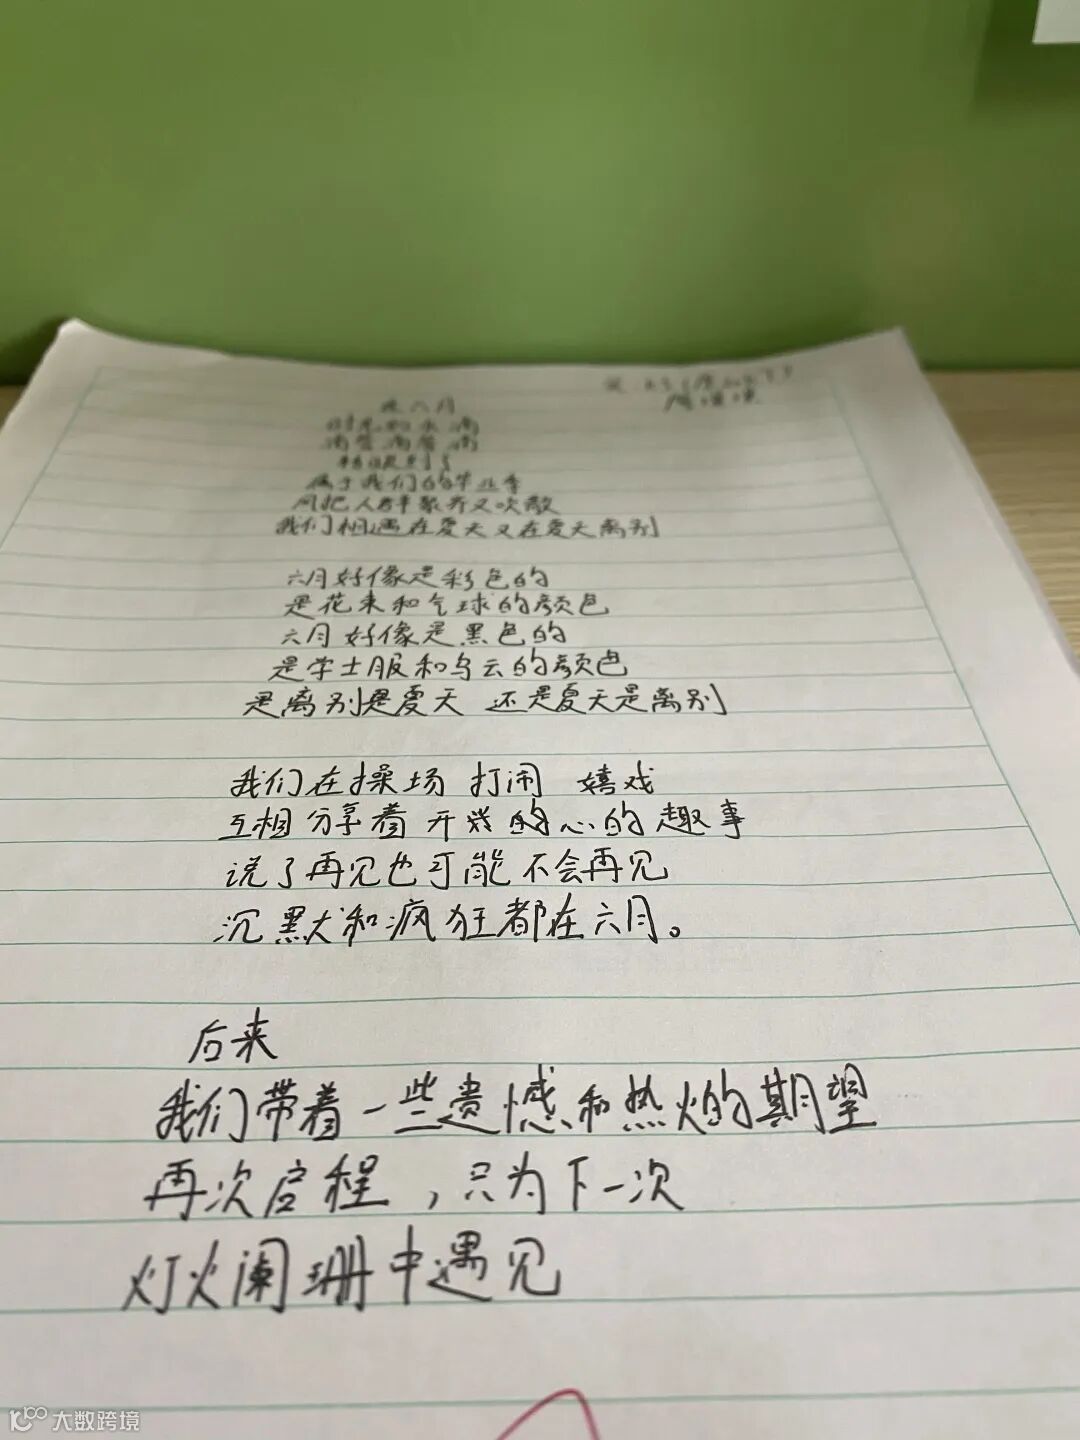 六月
时光的水滴
滴答滴答滴
转眼到了
属于我们的毕业季
风把人群聚齐又吹散
我们相遇在夏天又在夏天离别
六月好像是彩色的
是花束和气球的颜色
六月好像是黑色的
是学士服和乌云的颜色
是离别是夏天 还是夏天是离别
我们在操场 打闹 嬉戏
互相分享着 开 的心的趣事
说了再见也可能不会再见
沉默和疯狂都在六月。
后来
我们带着一些遗憾和热灼的期望
再次启程，只为下一次
灯火阑珊中遇见
大数跨境